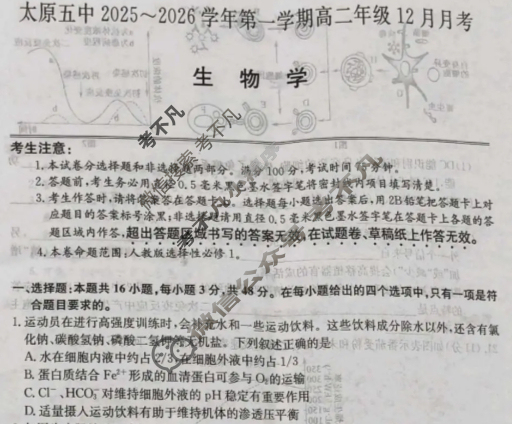 太原五中2025~2026学年第一学期高二年级12月月考
生物学
考生注意:
1.本试卷分选择题和非选择题两部分。满分100分,考试时间75分钟。
2.答题前,考生务必用直径0.5毫米黑色墨水签字笔将密封线内项目填写清楚。
3.考生作答时,请将答案答在答题卡上。选择题每小题选出答案后,用2B铅笔把答题卡上对
应题目的答案标号涂黑;非选择题请用直径0.5毫米黑色墨水签字笔在答题卡上各题的答
题区域内作答,超出答题区域书写的答案无效,在试题卷、草稿纸上作答无效。
4.本卷命题范围:人教版选择性必修1。
一、选择题:本题共16小题,每小题3分,共48分。在每小题给出的四个选项中,只有一项是符
合题目要求的。
1.运动员在进行高强度训练时,会补充水和一些运动饮料。这些饮料成分除水以外,还含有氯
化钠、碳酸氢钠、磷酸二氢钾等无机盐。下列叙述正确的是
A.水在细胞内液中约占2/3,在细胞外液中约占1/3
B.蛋白质结合Fe²⁺形成的血清蛋白可参与O₂的运输
C.Cl⁻、HCO₃⁻对维持细胞外液的pH稳定有重要作用
D.适量摄入运动饮料有助于维持机体的渗透压平衡
考不凡
考不凡
微信搜索考不凡
微信公众号考不凡